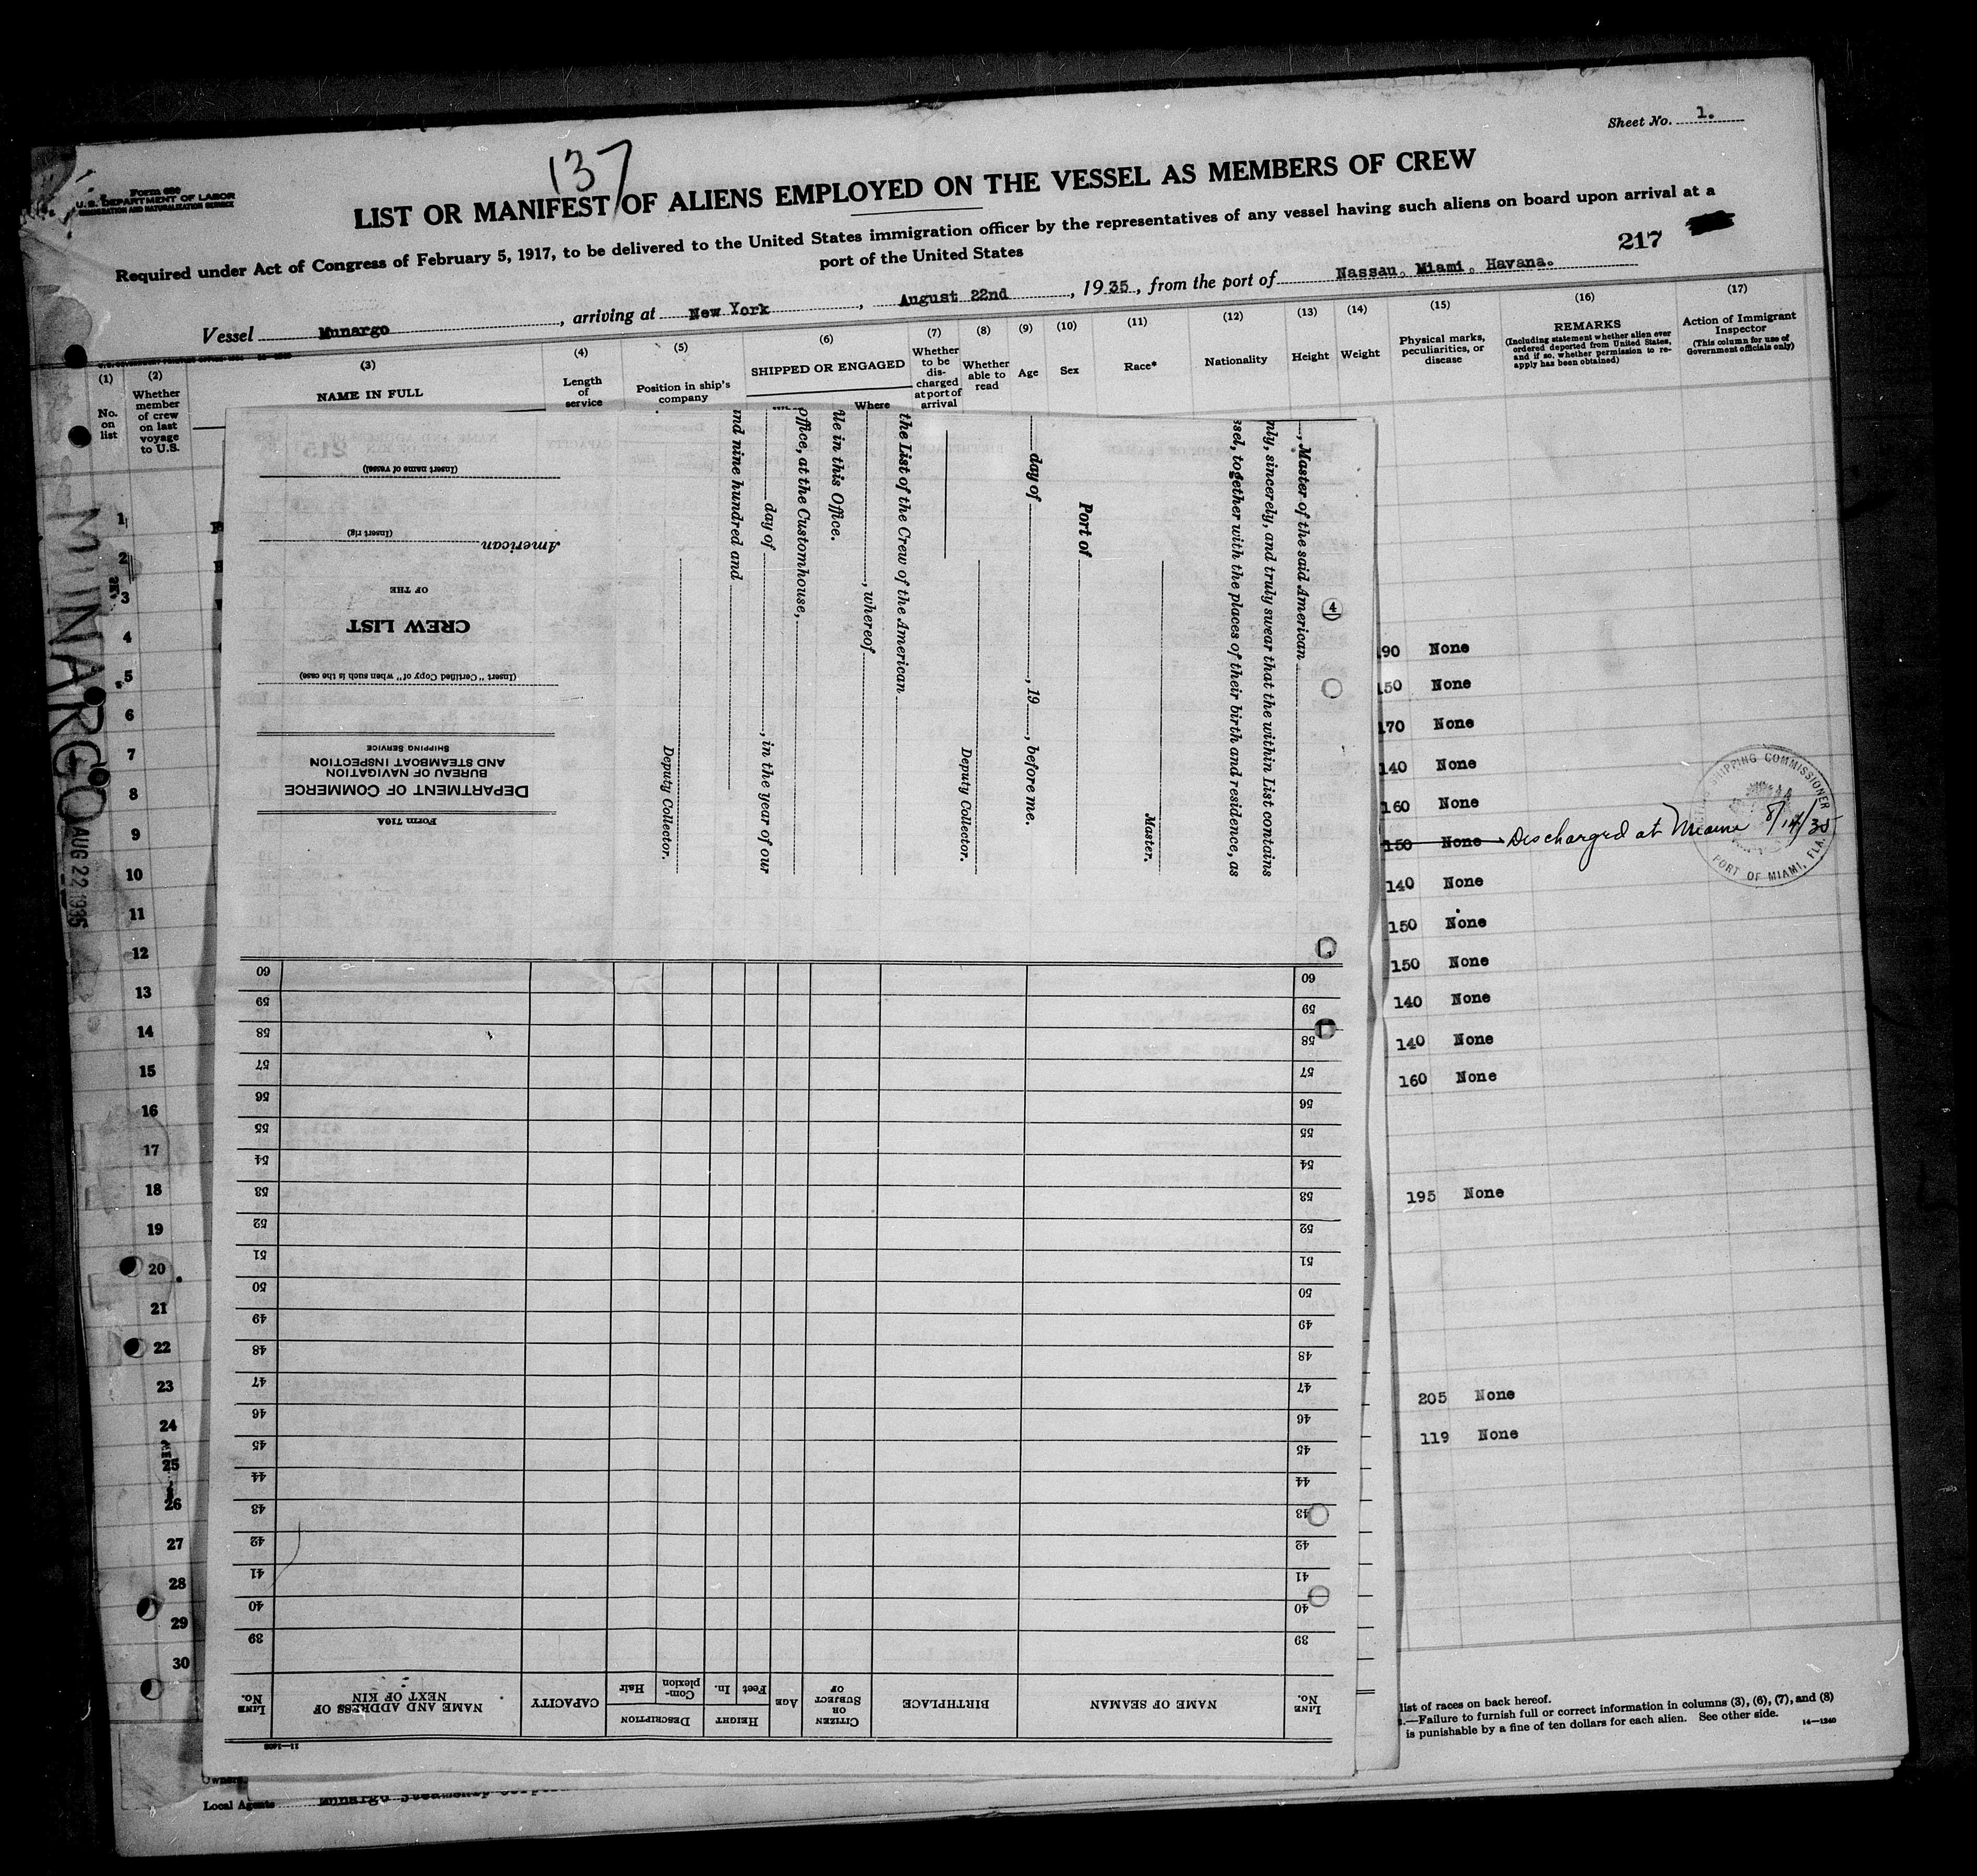 Sheet No. 1.
137
Form 680
U.S. DEPARTMENT OF LABOR
IMMIGRATION AND NATURALIZATION SERVICE
LIST OR MANIFEST OF ALIENS EMPLOYED ON THE VESSEL AS MEMBERS OF CREW
Required under Act of Congress of February 5, 1917, to be delivered to the United States immigration officer by the representatives of any vessel having such aliens on board upon arrival at a
port of the United States
217
Vessel Munargo, arriving at New York, August 22nd, 1935, from the port of Nassau, Miami, Havana.
(1) (2) (3) (4) (5) (6) (7) (8) (9) (10) (11) (12) (13) (14) (15) (16) (17)
No. on list
Whether member of crew on last voyage to U.S.
NAME IN FULL
Length of service
Position in ship's company
SHIPPED OR ENGAGED
Where
Whether to be discharged at port of arrival
Whether able to read
Age
Sex
Race*
Nationality
Height
Weight
Physical marks, peculiarities, or disease
REMARKS
(Including statement whether alien ever ordered deported from United States, and if so, whether permission to reapply has been obtained)
Action of Immigrant Inspector
(This column for use of Government officials only)
MUNARGO
AUG 22 1935
1
2
3
4
5
6
7
8
9
10
11
12
13
14
15
16
17
18
19
20
21
22
23
24
25
26
27
28
29
30
190 None
150 None
170 None
140 None
160 None
150 None Discharged at Miami 8/14/35
140 None
150 None
150 None
140 None
140 None
160 None
195 None
205 None
119 None
SHIPPING COMMISSIONER
PORT OF MIAMI, FLA.
Form 710A
DEPARTMENT OF COMMERCE
BUREAU OF NAVIGATION
AND STEAMBOAT INSPECTION
SHIPPING SERVICE
(Insert "Certified Copy of" when such is the case)
CREW LIST
OF THE
American
(Insert rig)
(Insert name of vessel)
, Master of the said American
nly, sincerely, and truly swear that the within List contains
sel, together with the places of their birth and residence, as
Master.
Port of
day of , 19 , before me.
Deputy Collector.
the List of the Crew of the American
, whereof
ile in this Office.
office, at the Customhouse,
day of , in the year of our
nd nine hundred and
Deputy Collector.
4
LINE No.
NAME OF SEAMAN
BIRTHPLACE
CITIZEN OR SUBJECT OF
AGE
HEIGHT
Feet In.
DESCRIPTION
Complexion Hair
CAPACITY
NAME AND ADDRESS OF NEXT OF KIN
LINE No.
39 39
40 40
41 41
42 42
43 43
44 44
45 45
46 46
47 47
48 48
49 49
50 50
51 51
52 52
53 53
54 54
55 55
56 56
57 57
58 58
59 59
60 60
11—1408
list of races on back hereof.
.—Failure to furnish full or correct information in columns (3), (6), (7), and (8)
is punishable by a fine of ten dollars for each alien. See other side.
14—1240
Owners
Local Agents Munargo Steamship